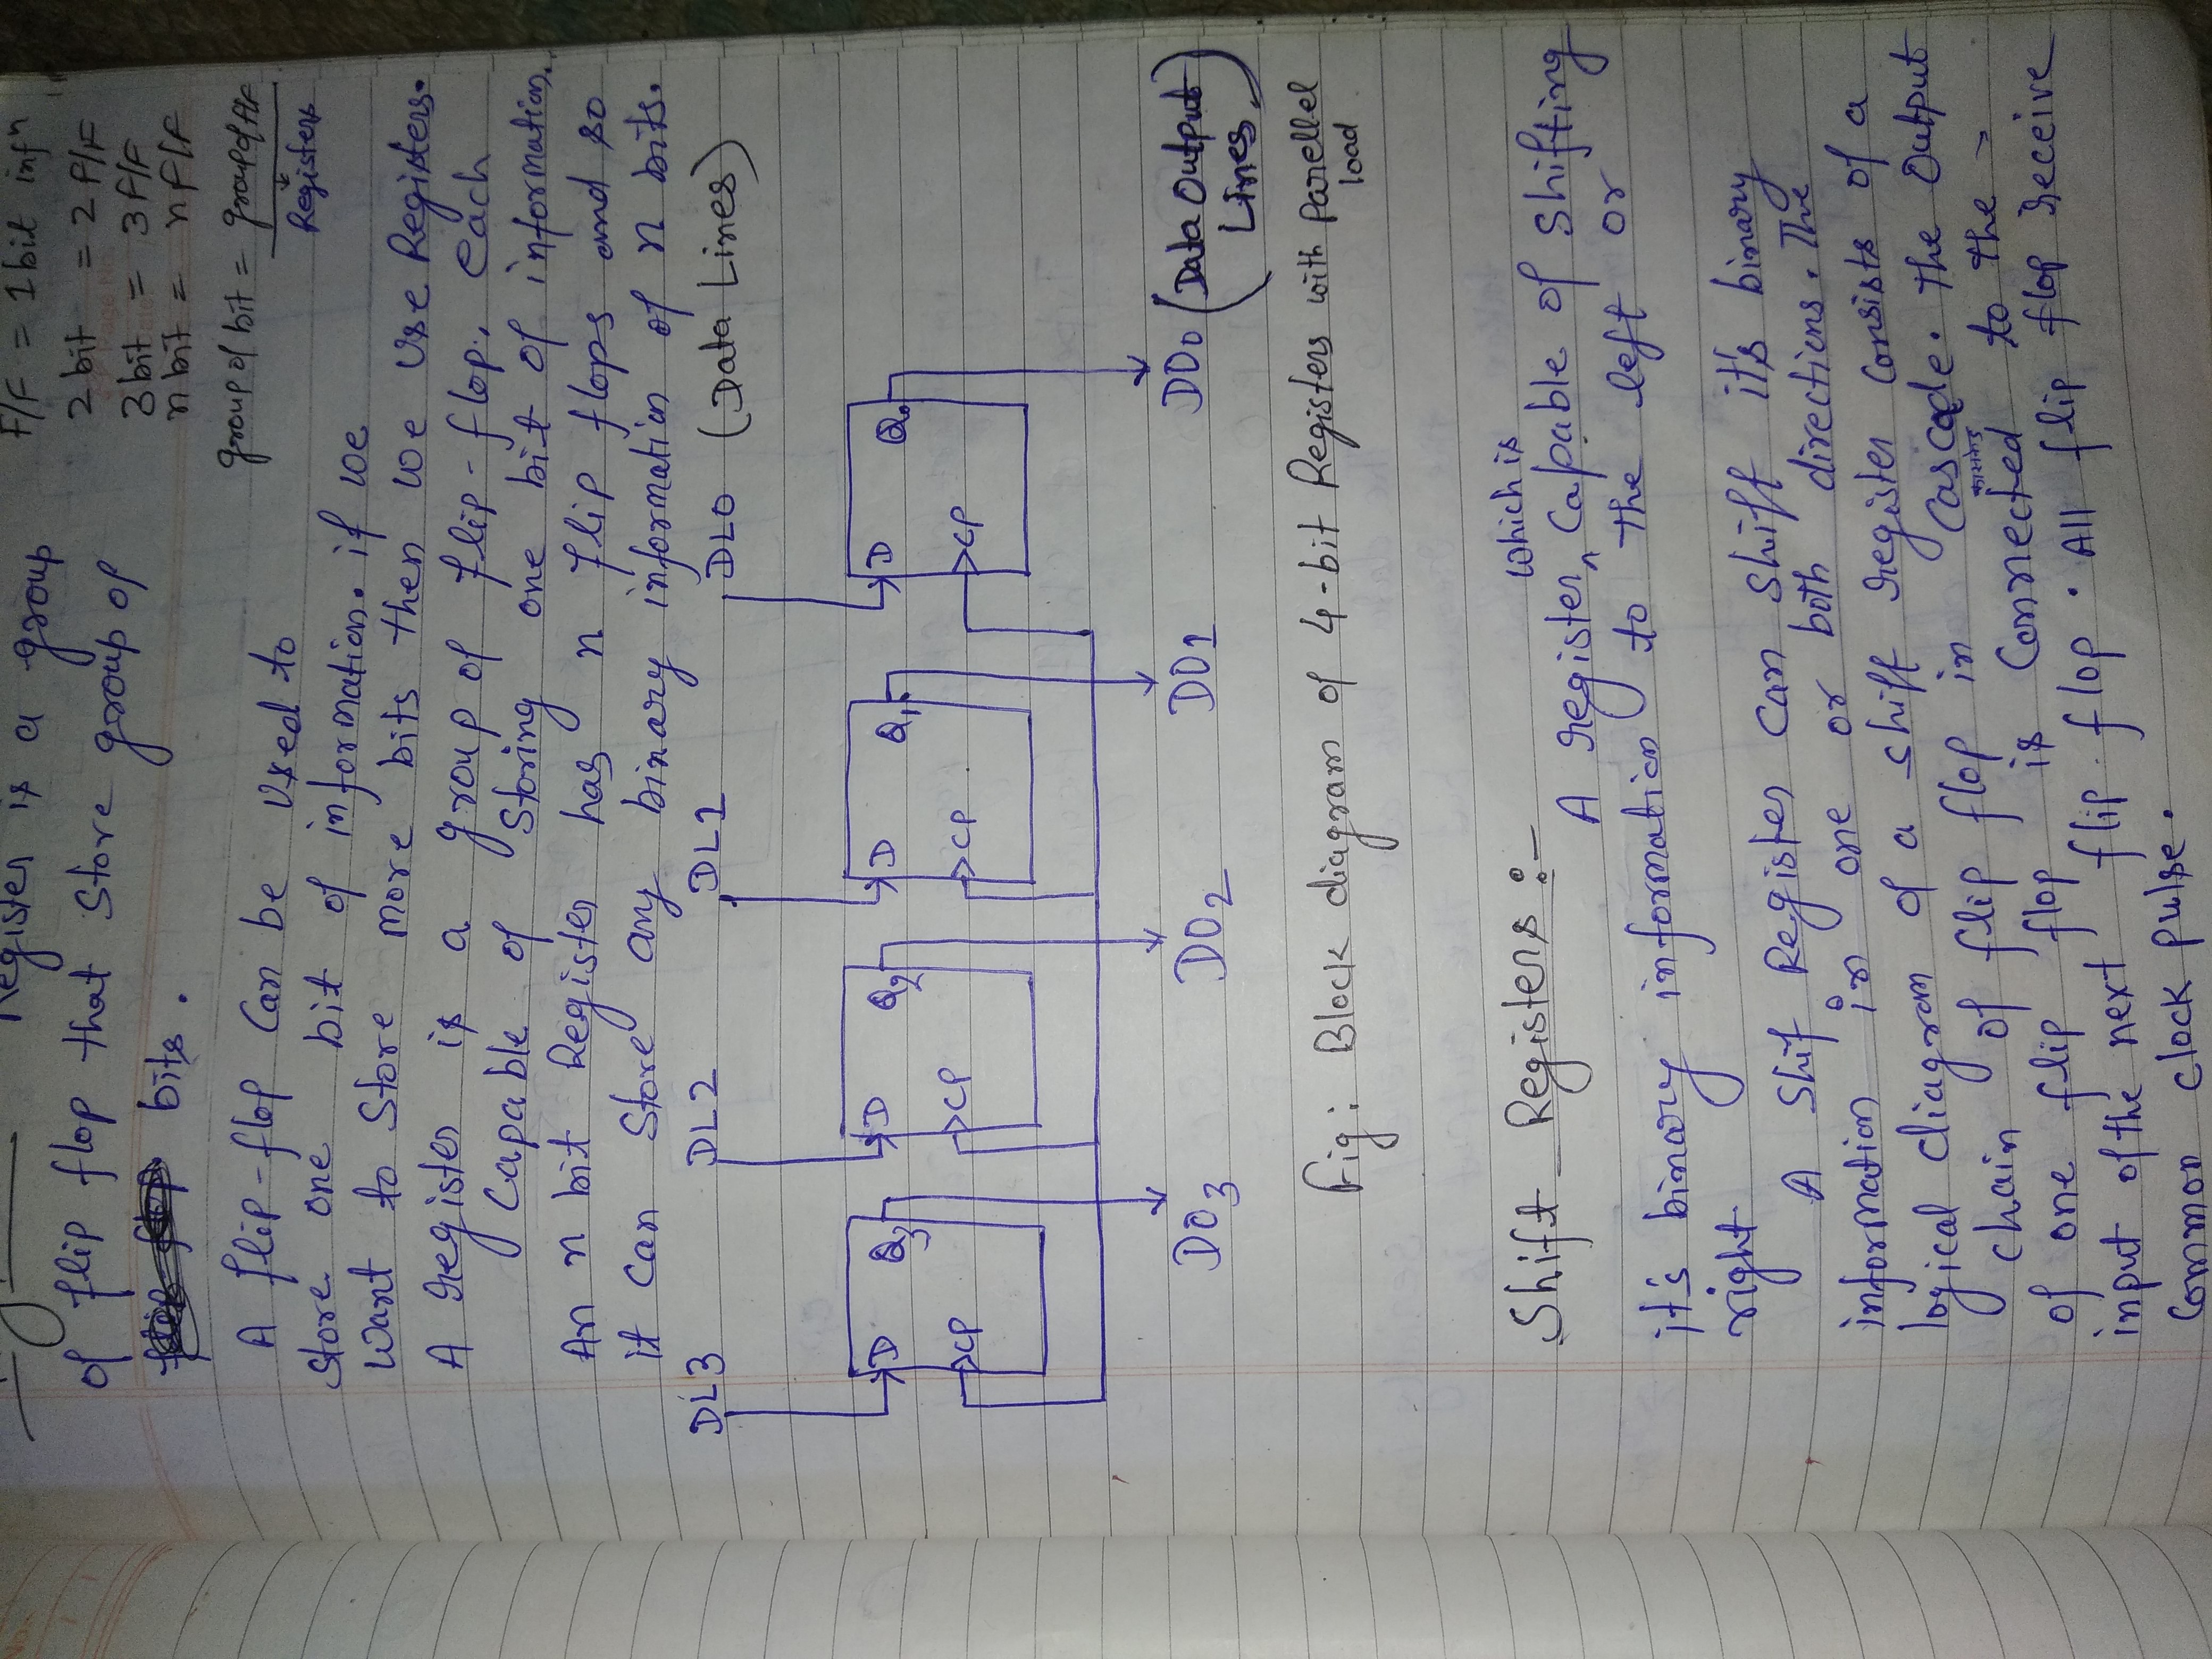 Register is a group
of flip flop that store group of
bits.
F/F = 1 bit infn
2 bit = 2 F/F
3 bit = 3 F/F
n bit = n F/F
group of bit = group of F/F
Registers
A flip-flop can be used to
store one bit of information. if we
want to store more bits then we use Registers.
A register is a group of flip-flop, each
capable of storing one bit of information.
An n bit Register has n flip flops and so
it can store any binary information of n bits.
DL3 DL2 DL1 DL0 (Data Lines)
D Q3 D Q2 D Q1 D Q0
CP CP CP CP
DO3 DO2 DO1 DO0 (Data Output
Lines)
Fig: Block diagram of 4-bit Registers with Parellel
load
Shift Registers :-
which is
A register, capable of shifting
it's binary information to the left or
right
A Shif Register can shiff it's binary
information in one or both directions. The
logical diagram of a shiff register consists of a
chain of flip flop in cascade. the output
कासकेड
of one flip flop is connected to the
input of the next flip flop. All flip flop receive
common clock pulse.